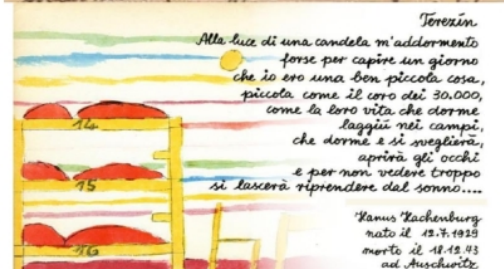 Terezín
Alla luce di una candela m'addormento
forse per capire un giorno
che io ero una ben piccola cosa,
piccola come il coro dei 30.000,
come la loro vita che dorme
laggiù nei campi,
che dorme e si sveglierà,
aprirà gli occhi
e per non vedere troppo
si lascerà riprendere dal sonno....
Hanus Hachenburg
nato il 12.7.1929
morto il 18.12.43
ad Auschwitz
14
15
16